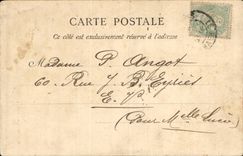 CARTE POSTALE
Ce côté est exclusivement réservé à l'adresse
Madame P. Angot
60 Rue J. B. Eyriès
E. V.
(Pour Melle Lucie)